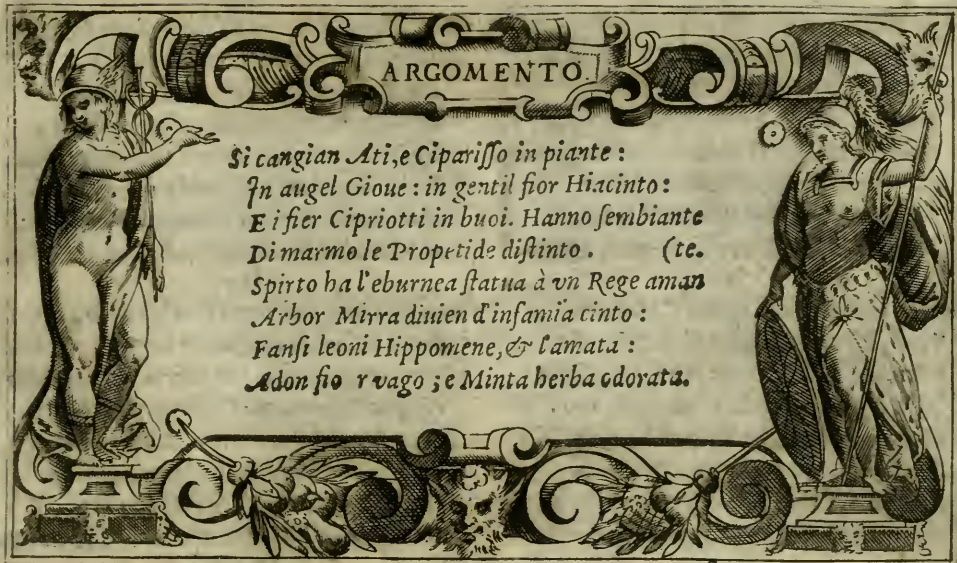 ARGOMENTO.
Si cangian Ati, e Cipariſſo in piante :
In augel Gioue : in gentil fior Hiacinto :
E i fier Cipriotti in buoi. Hanno ſembiante
Di marmo le Propetide diſtinto . (te.
Spirto ha l'eburnea ſtatua à vn Rege aman
Arbor Mirra diuien d'infamia cinto :
Fanſi leoni Hippomene, & l'amata :
Adon fio r vago ; e Minta herba odorata.